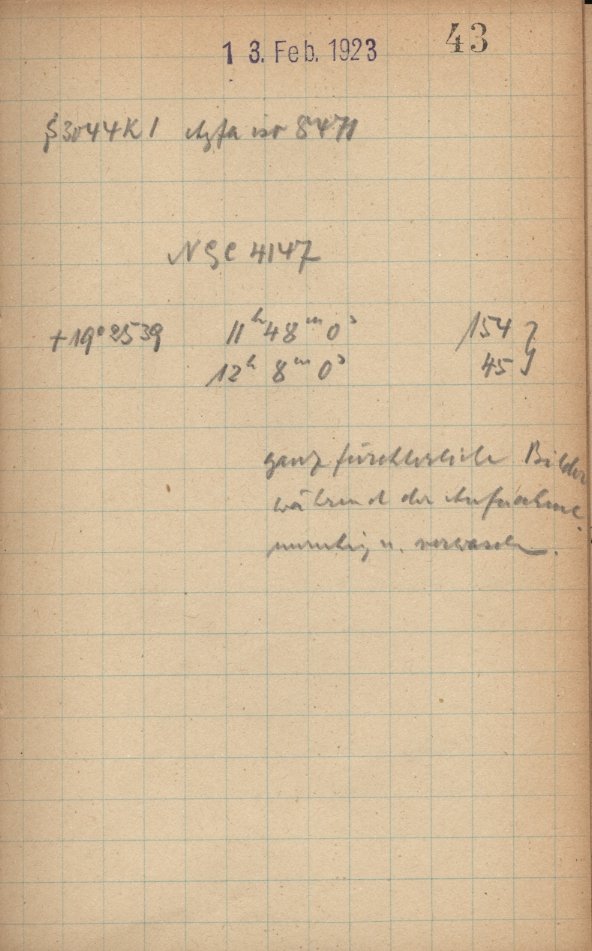 13. Feb. 1923 43
S3044K1 Agfa iso 8471
NGC 4147
+19° 2539 11ʰ 48ᵐ 0ˢ 154
12ʰ 8ᵐ 0ˢ 45
ganz fürchterliche Bilder
während der Aufnahme.
unruhig u. verwaschen.